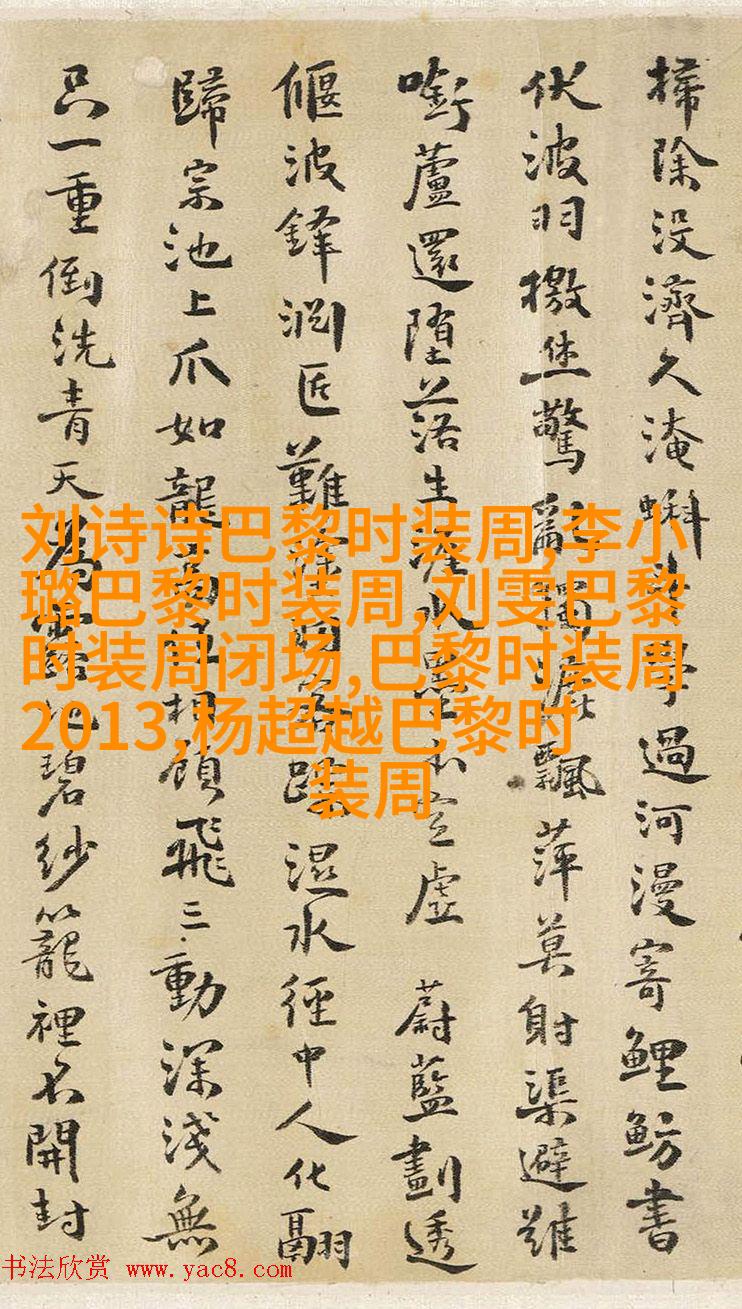 掃除没濟久淹蝌學過河漫寄鯉魴書
伏波羽檄驚飄萍莫射渠避難
啣蘆還墮落生涯水空虛 蔚藍劃透
偃波鋒難濕水徑中人化翮
歸宗池上爪如龍相顧飛三動深淺無
只一重倒洗青天為碧紗籠裡開封
刘诗诗巴黎时装周,李小
璐巴黎时装周,刘雯巴黎
时装周闭场,巴黎时装周
2013,杨超越巴黎时
装周
书法欣赏 www.yac8.com